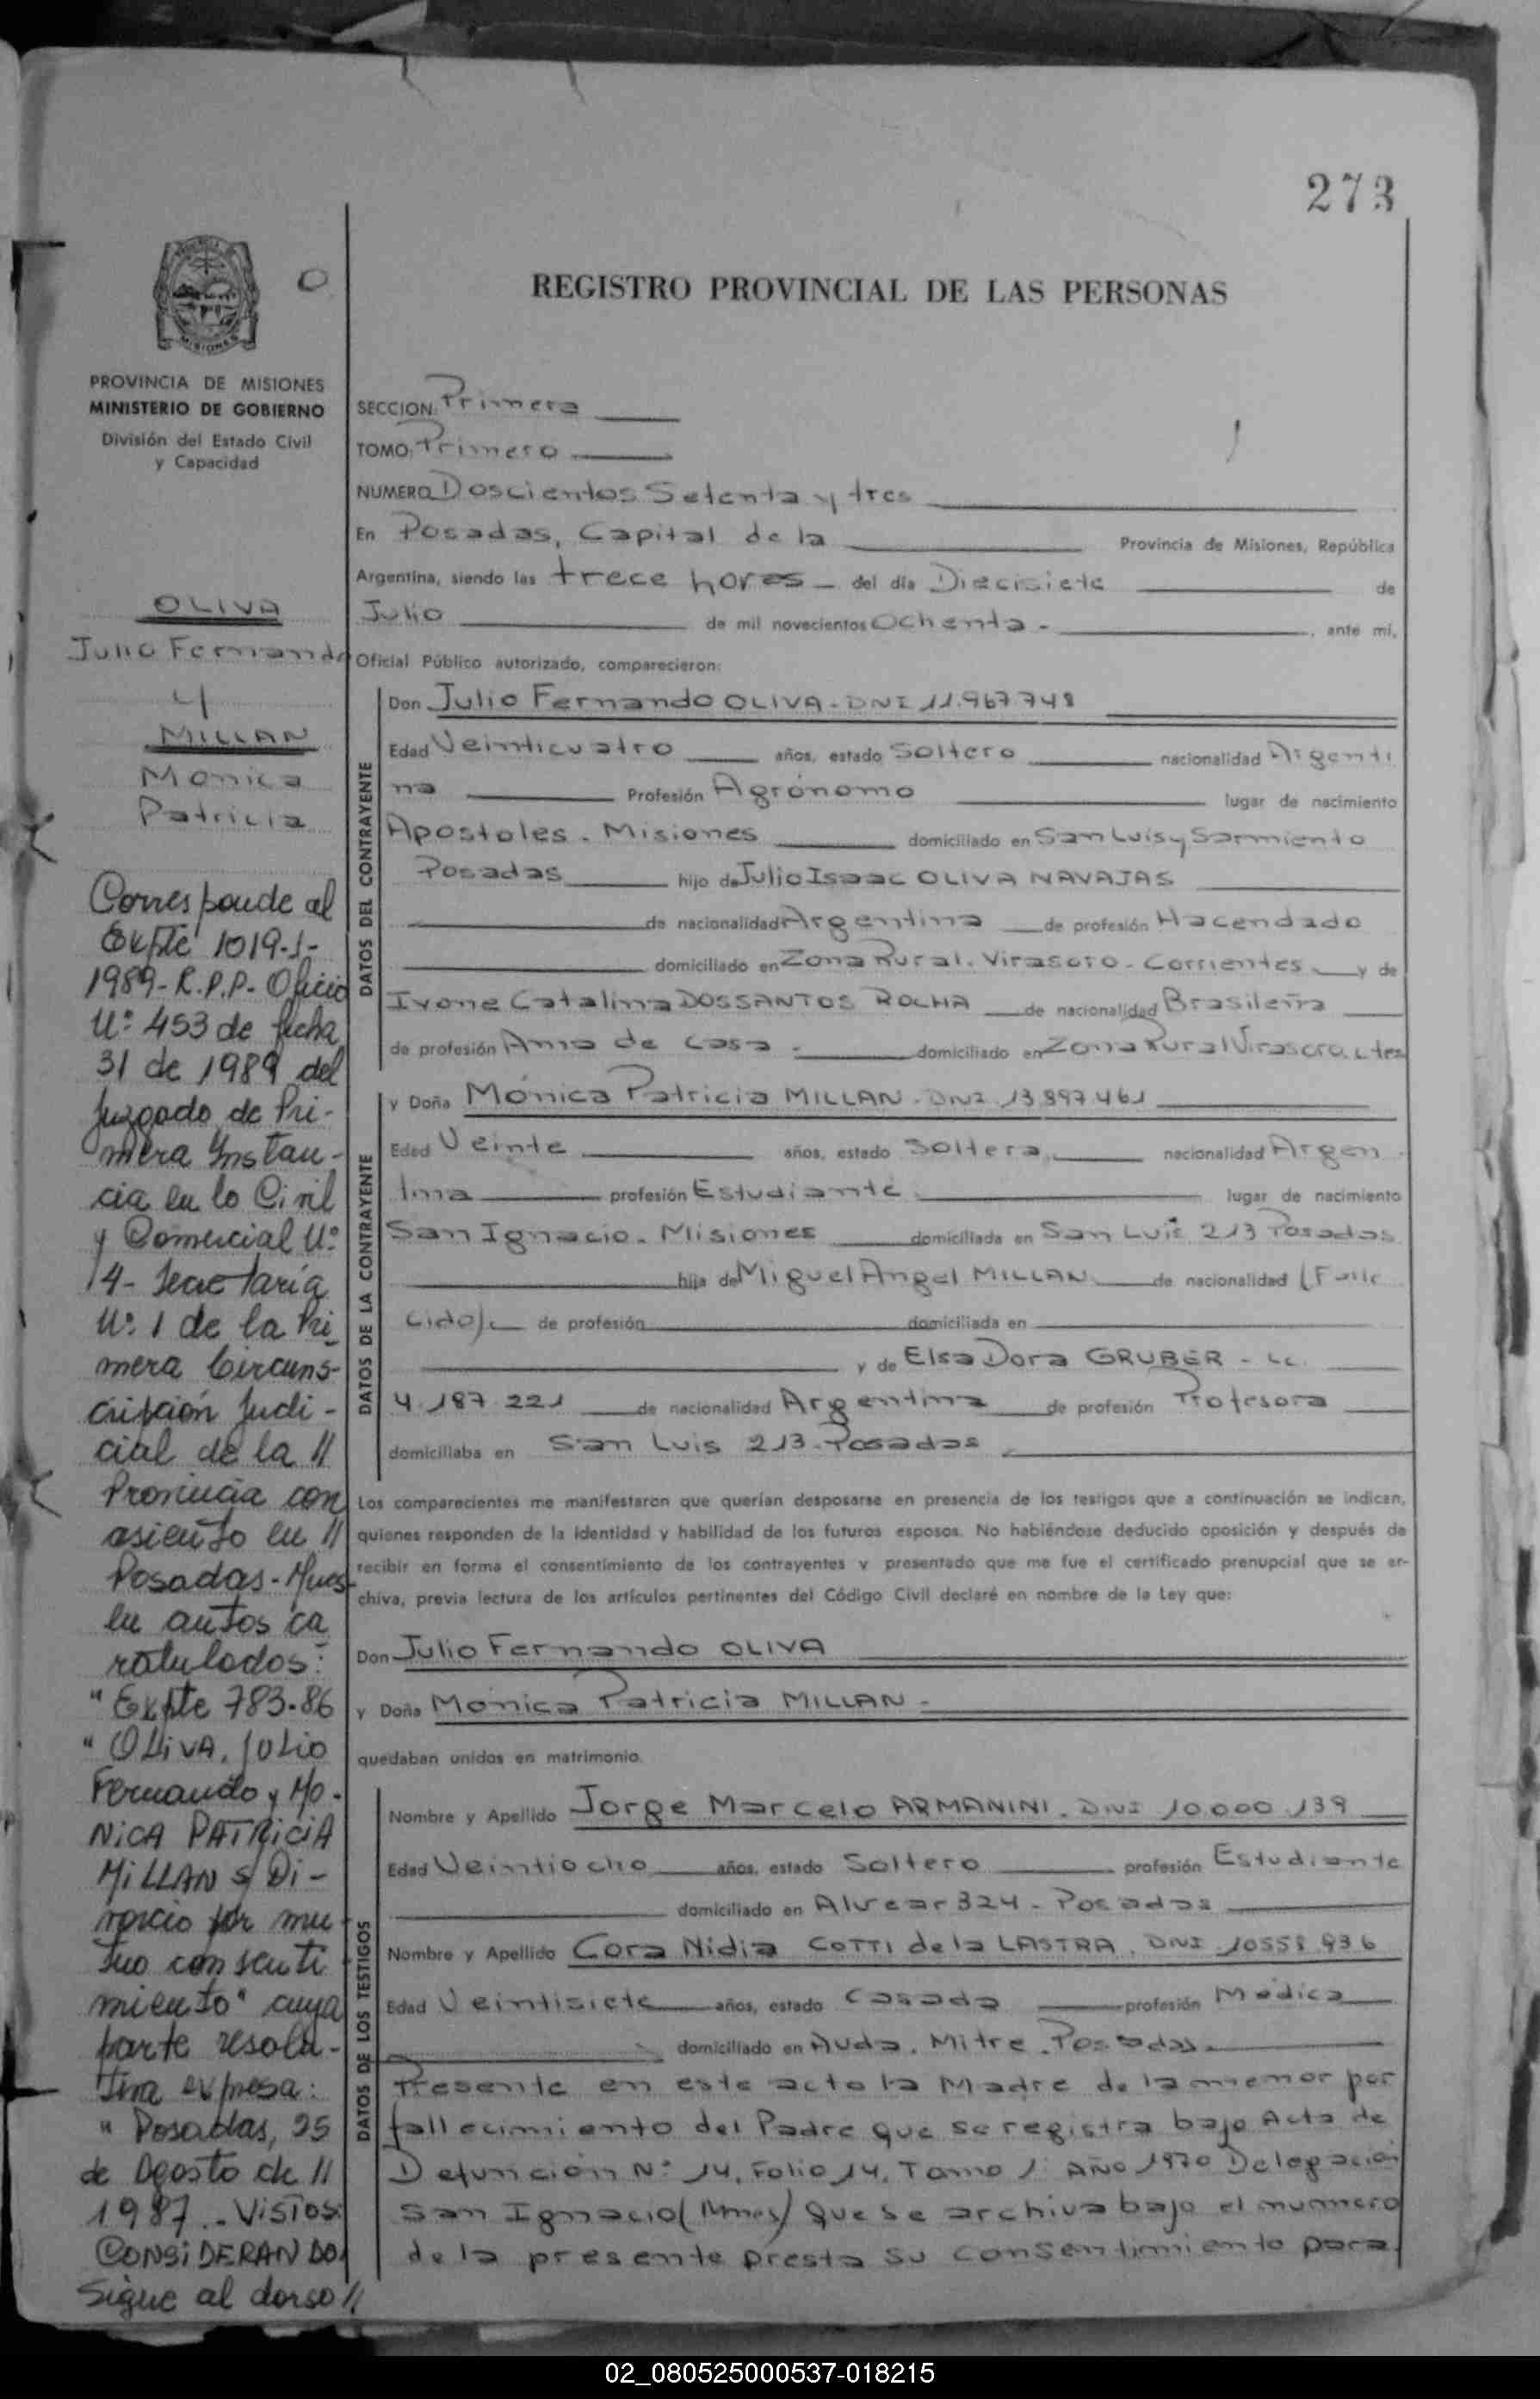 273
REGISTRO PROVINCIAL DE LAS PERSONAS
MISIONES
PROVINCIA DE MISIONES
MINISTERIO DE GOBIERNO
División del Estado Civil
y Capacidad
OLIVA
Julio Fernando
y
MILLAN
Monica
Patricia
Corresponde al
Expte 1019-J-
1989-R.P.P- Oficio
Nº 453 de fecha
31 de 1989 del
Juzgado de Pri-
mera Instan-
cia en lo Civil
y Comercial Nº
4- Secretaría
Nº 1 de la Pri
mera Circuns-
cripción Judi-
cial de la //
Provincia con
asiento en //
Posadas-Mnes-
en autos ca
ratulados:
"Expte 783-86
"OLIVA, JULIO
Fernando y MO-
NICA PATRICIA
MILLAN s/ Di-
vorcio por mu
tuo consenti
miento" cuya
parte resolu-
tiva expresa:
"Posadas, 25
de Agosto de //
1987.- VISTOS:
CONSIDERANDO:
Sigue al dorso //.
SECCION: Primera
TOMO: Primero
NUMERO Doscientos Setenta y tres
En Posadas, Capital de la Provincia de Misiones, República
Argentina, siendo las trece horas - del día Diecisiete de
Julio de mil novecientos Ochenta - , ante mí,
Oficial Público autorizado, comparecieron:
DATOS DEL CONTRAYENTE
Don Julio Fernando OLIVA - DNI 11.967.748
Edad Veinticuatro años, estado Soltero nacionalidad Argenti
na Profesión Agrónomo lugar de nacimiento
Apostoles - Misiones domiciliado en San Luis y Sarmiento
Posadas hijo de Julio Isaac OLIVA NAVAJAS
de nacionalidad Argentina de profesión Hacendado
domiciliado en Zona Rural. Virasoro - Corrientes y de
Ivone Catalina DOSSANTOS ROCHA de nacionalidad Brasileña
de profesión Ama de Casa - domiciliado en Zona Rural Virasoro, Ctes
DATOS DE LA CONTRAYENTE
y Doña Mónica Patricia MILLAN - DNI 13.897.461
Edad Veinte años, estado Soltera nacionalidad Argen
tina profesión Estudiante lugar de nacimiento
San Ignacio - Misiones domiciliada en San Luis 213 Posadas
hija de Miguel Angel MILLAN de nacionalidad (Falle
cido) de profesión domiciliada en
y de Elsa Dora GRUBER - Lc.
4.187.221 de nacionalidad Argentina de profesión Profesora
domiciliaba en San Luis 213 - Posadas
Los comparecientes me manifestaron que querían desposarse en presencia de los testigos que a continuación se indican,
quienes responden de la identidad y habilidad de los futuros esposos. No habiéndose deducido oposición y después de
recibir en forma el consentimiento de los contrayentes y presentado que me fue el certificado prenupcial que se ar-
chiva, previa lectura de los artículos pertinentes del Código Civil declaré en nombre de la Ley que:
Don Julio Fernando OLIVA
y Doña Mónica Patricia MILLAN -
quedaban unidos en matrimonio.
DATOS DE LOS TESTIGOS
Nombre y Apellido Jorge Marcelo ARMANINI - DNI 10.000.139
Edad Veintiocho años, estado Soltero profesión Estudiante
domiciliado en Alvear 324 - Posadas
Nombre y Apellido Cora Nidia COTTI de la LASTRA. DNI 10558.936
Edad Veintisiete años, estado Casada profesión Médica
domiciliado en Avda. Mitre. Posadas.
Presente en este acto la Madre de la menor por
fallecimiento del Padre que se registra bajo Acta de
Defunción Nº 14, Folio 14, Tomo 1º Año 1970 Delegación
San Ignacio (Mnes) que se archiva bajo el numero
de la presente presta su consentimiento para
02_080525000537-018215